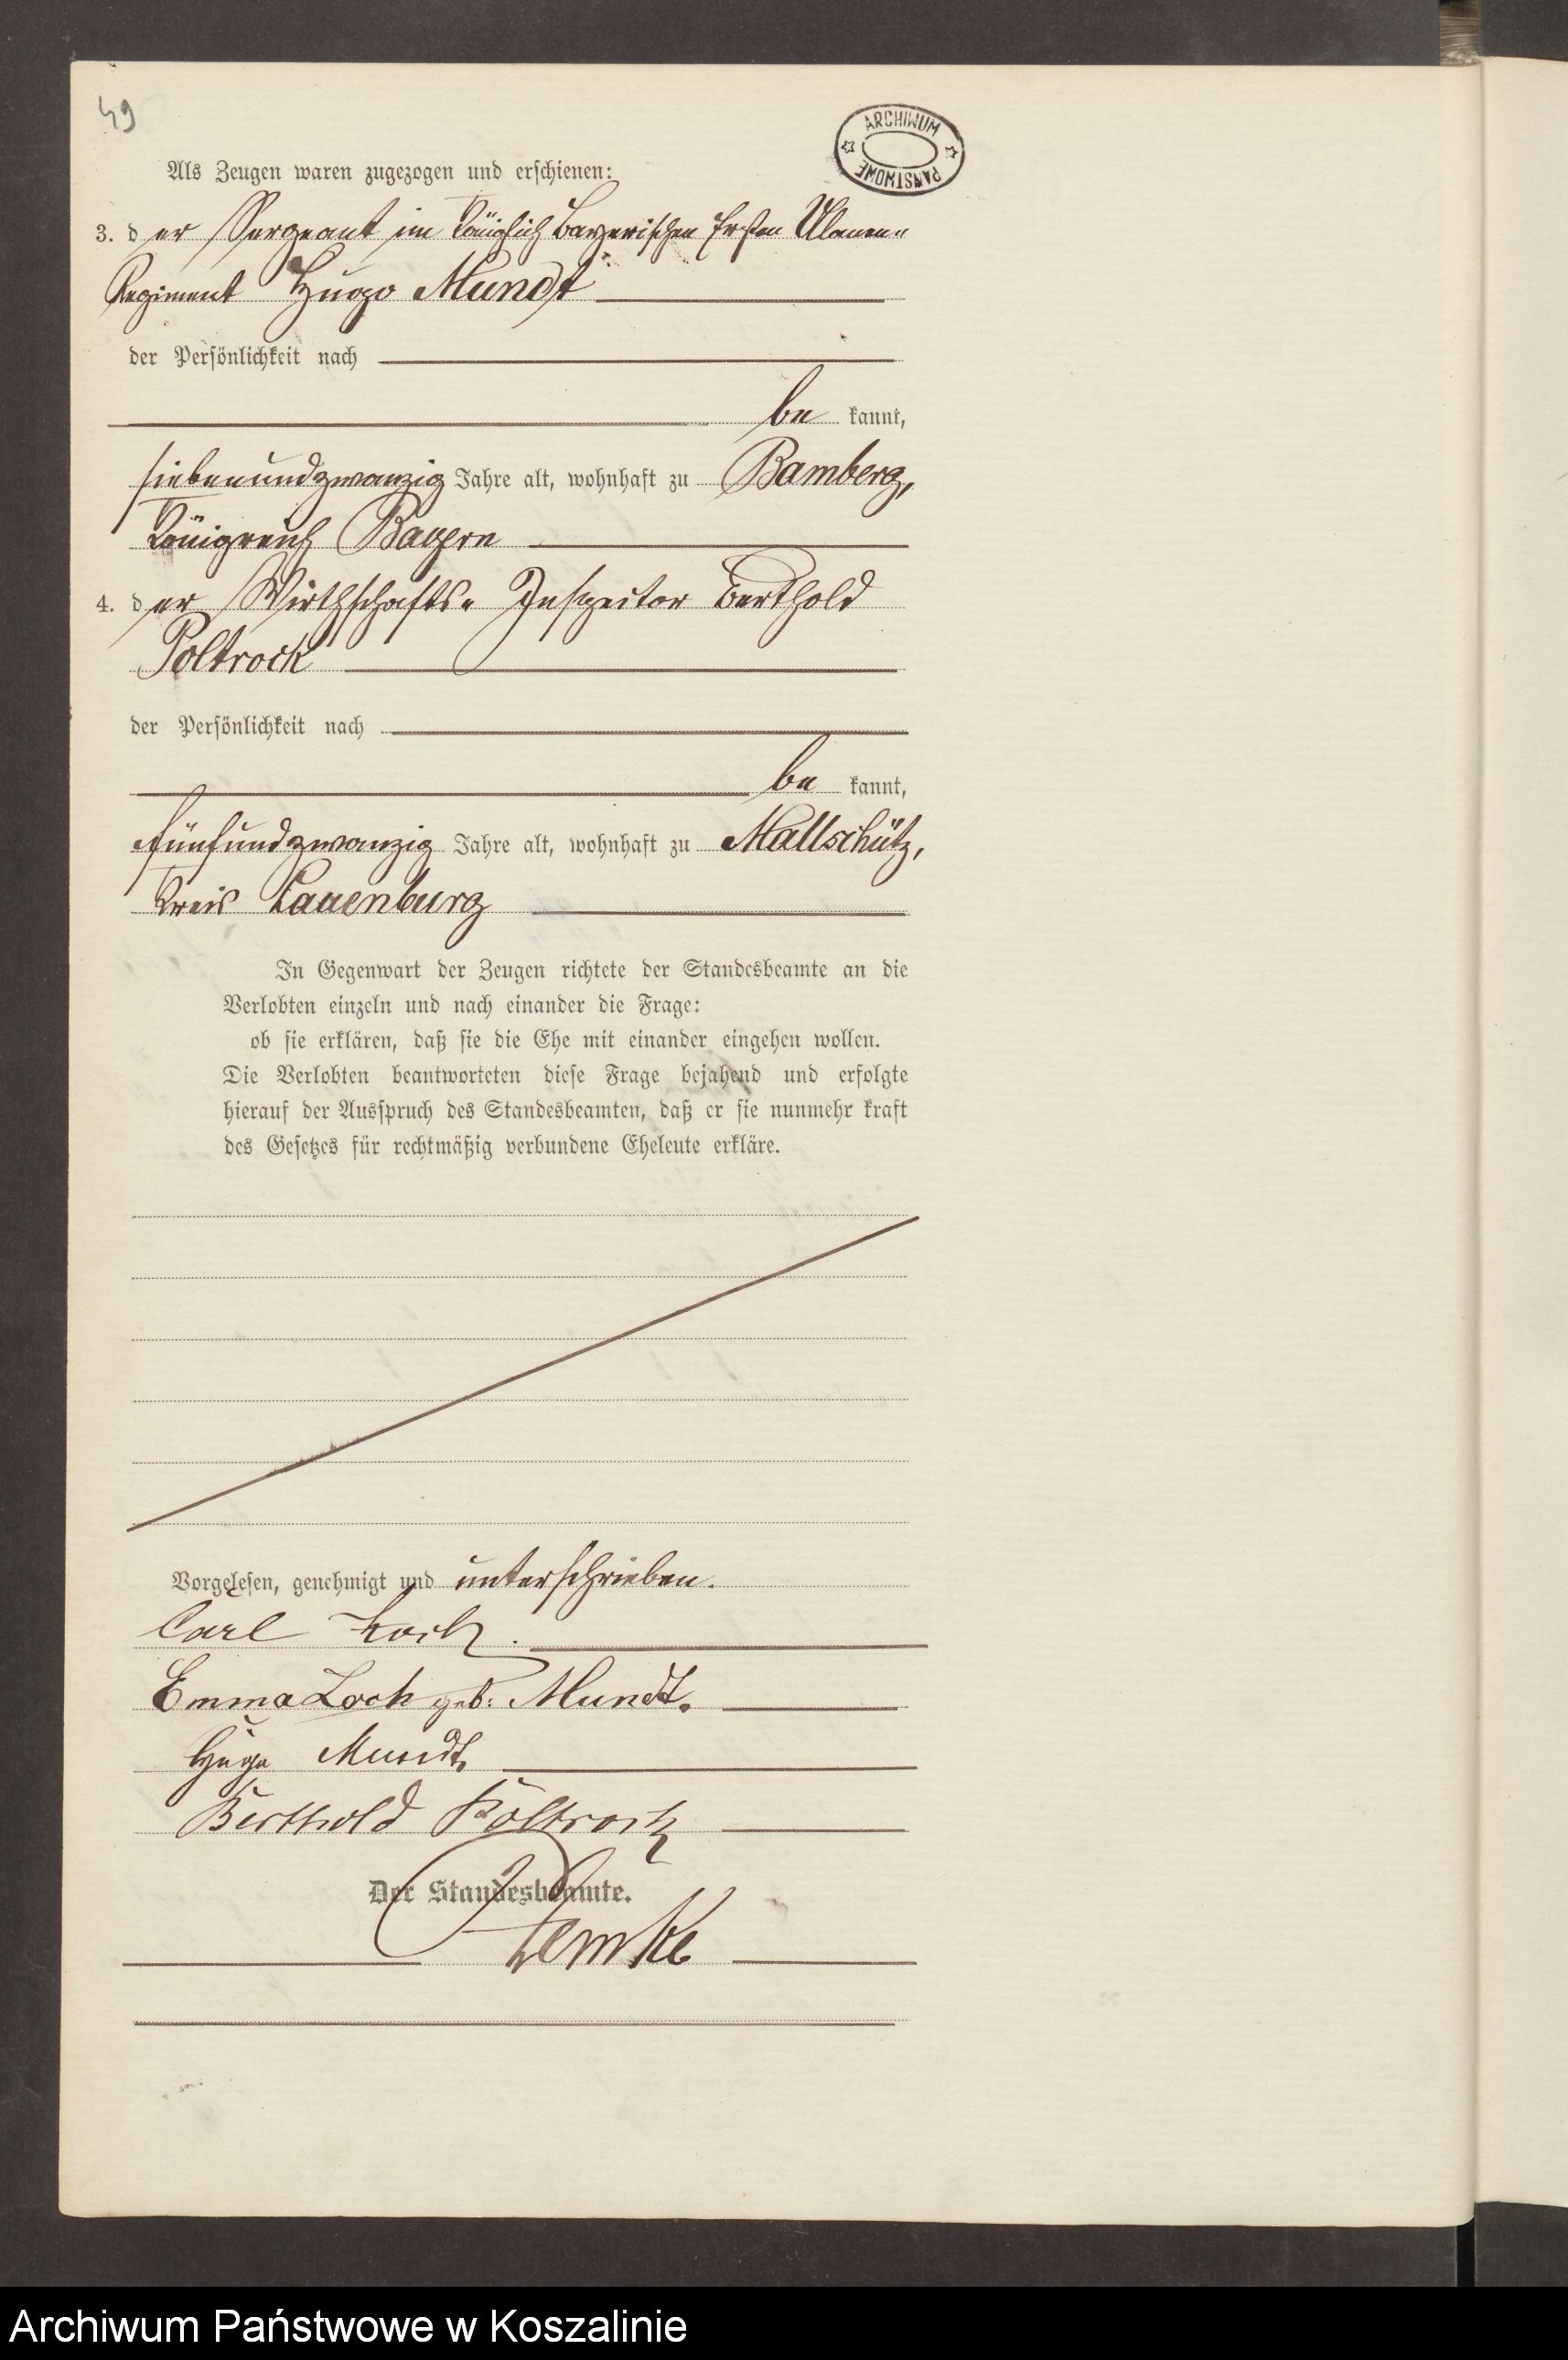 49
ARCHIWUM PAŃSTWOWE
Als Zeugen waren zugezogen und erschienen:
3. der Sergeant im Königlich Bayerischen Ersten Ulanen-
Regiment Hugo Mundt
der Persönlichkeit nach
be kannt,
siebenundzwanzig Jahre alt, wohnhaft zu Bamberg,
Königreich Bayern
4. der Wirthschafts- Inspector Berthold
Poltrock
der Persönlichkeit nach
be kannt,
fünfundzwanzig Jahre alt, wohnhaft zu Mallschütz,
Kreis Lauenburg
In Gegenwart der Zeugen richtete der Standesbeamte an die
Verlobten einzeln und nach einander die Frage:
ob sie erklären, daß sie die Ehe mit einander eingehen wollen.
Die Verlobten beantworteten diese Frage bejahend und erfolgte
hierauf der Ausspruch des Standesbeamten, daß er sie nunmehr kraft
des Gesetzes für rechtmäßig verbundene Eheleute erkläre.
Vorgelesen, genehmigt und unterschrieben.
Carl Koch.
Emma Koch geb: Mundt.
Hugo Mundt
Berthold Poltrock
Der Standesbeamte.
Lemke
Archiwum Państwowe w Koszalinie